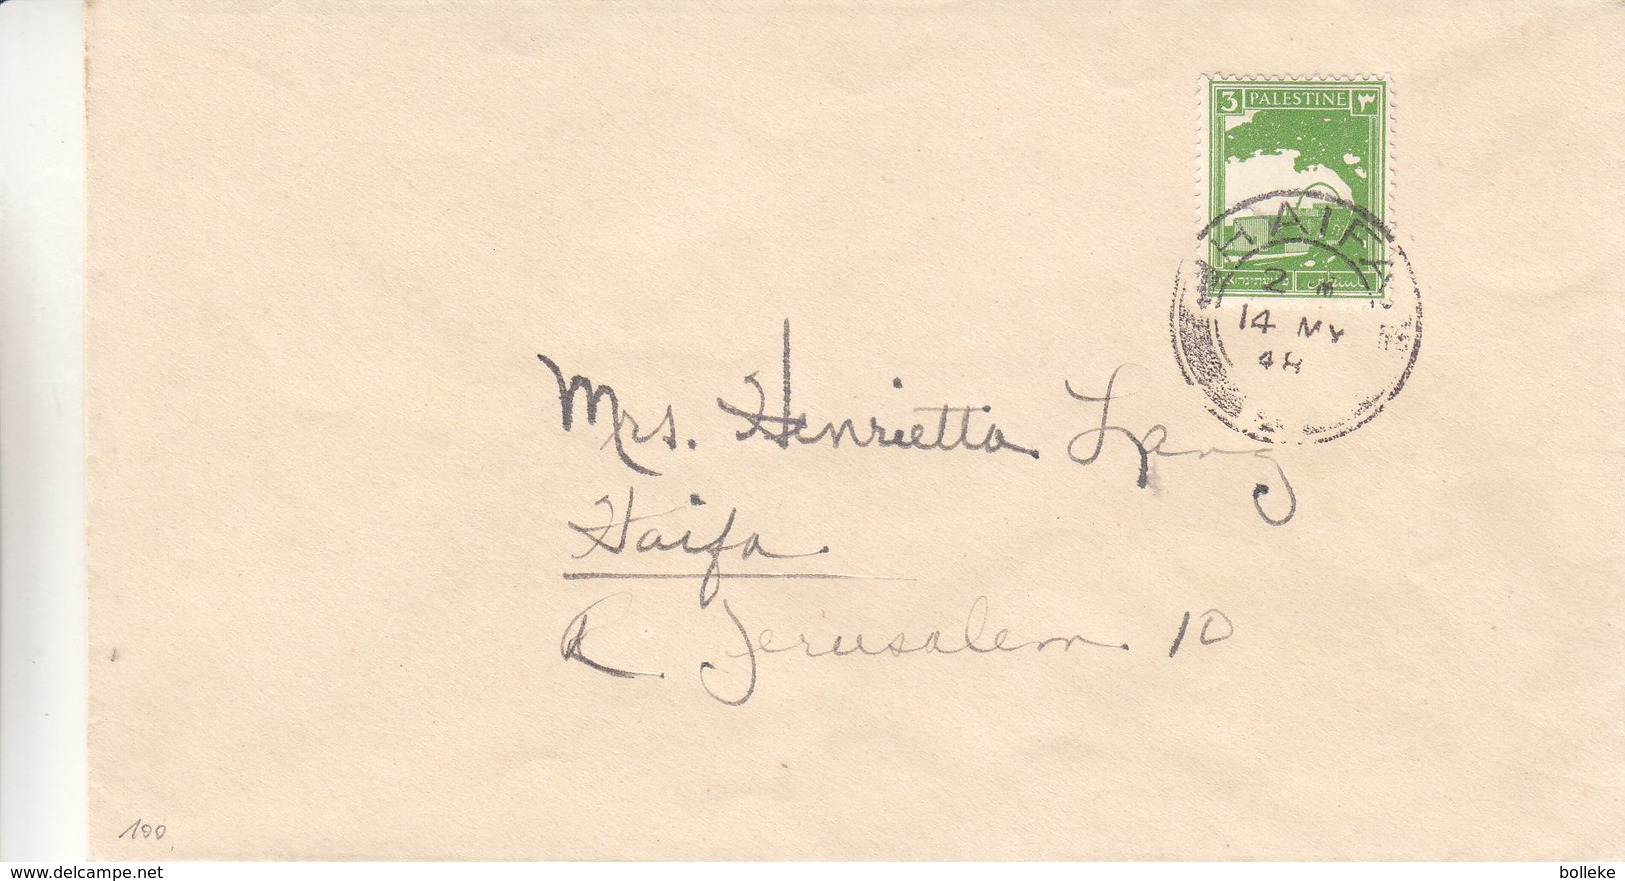 3 PALESTINE ٣
HAIFA
2
14 MY
48
Mrs. Henrietta Lang
Haifa.
R. Jerusalem. 10
100
delcampe.net
bolleke